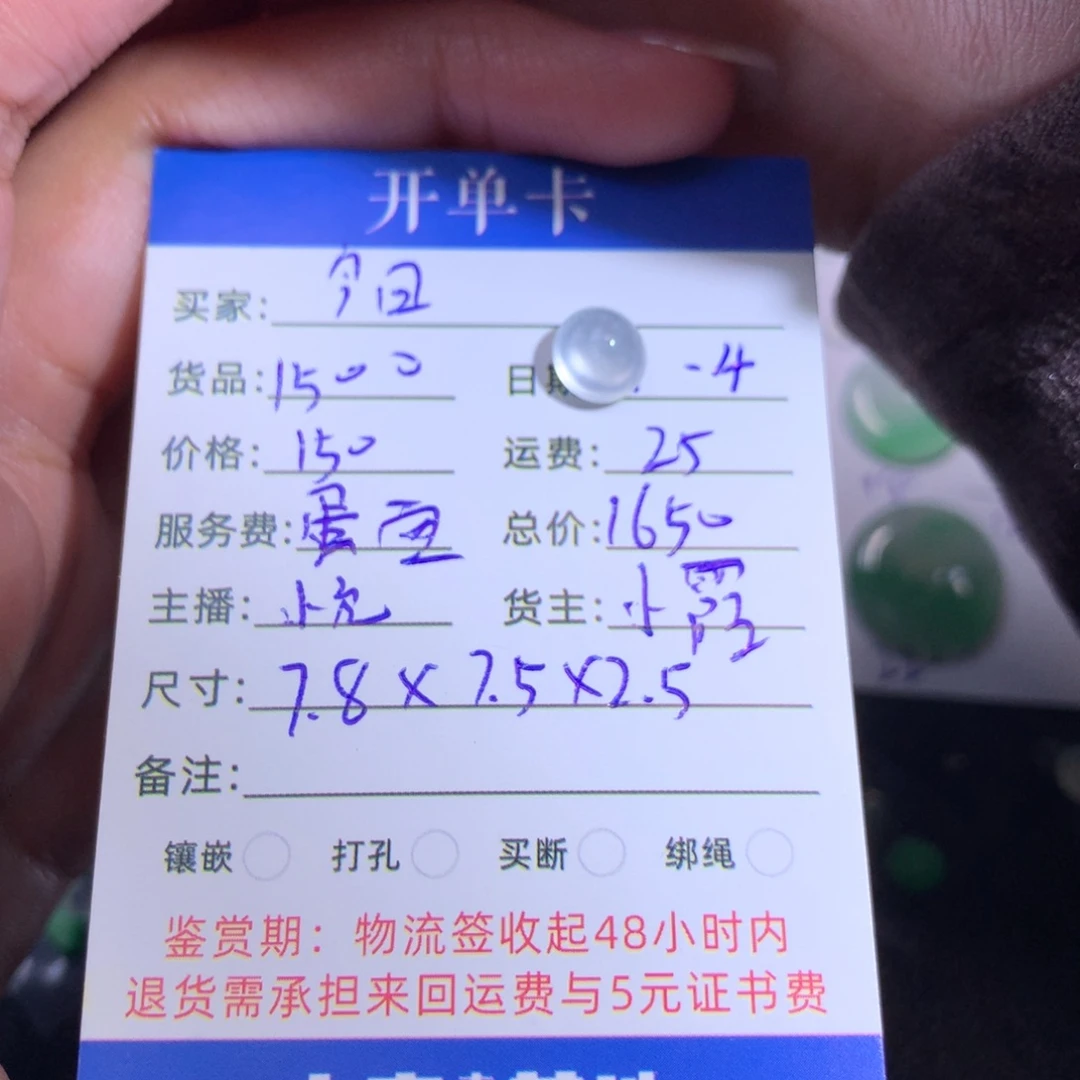 开单卡
买家: 今日
货品: 1500 日期 -4
价格: 150 运费: 25
服务费: 蛋面 总价: 1650
主播: 小允 货主: 小霞
尺寸: 7.8×7.5×2.5
备注:
镶嵌 打孔 买断 绑绳
鉴赏期: 物流签收起48小时内
退货需承担来回运费与5元证书费